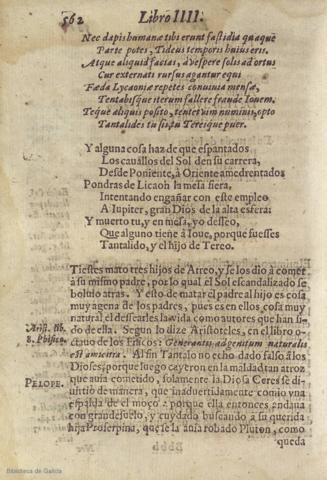 562 Libro IIII.
Nec dapis humanæ tibi erunt fastidia quaque
Parte potes, Tideus temporis huius eris.
Atque aliquid facias, a vespere solis ad ortus
Cur externati rursus agantur equi
Fæda Lycaoniæ repetes conuiuia mensæ,
Tentabisque iterum fallere fraude Iouem.
Teque aliquis posito, tentet vim numinis, opto
Tantalides tu sis, tu Tereique puer.
Y alguna cosa haz de que espantados
Los cauallos del Sol den su carrera,
Desde Poniente, à Oriente amedrentados
Pondras de Licaoh la mesa fiera,
Intentando engañar con este empleo
A Iupiter, gran Dios de la alta esfera:
Y muerto tu, y en mesa, yo desseo,
Que alguno tiene à Ioue, porque fuesses
Tantalido, y el hijo de Tereo.
Tiestes mato tres hijos de Atreo, y se los dio à comer
à su mismo padre, por lo qual el Sol escandalizado se
boluio atras. Y esto de matar el padre al hijo es cosa
muy agena de los padres, pues es en ellos cosa muy
natural el dessearles la vida como autores que han si-
do de ella. Segun lo dize Aristoteles, en el libro o-
Arist. lib.
8. Phisico.
ctauo de los Fisicos: Generantis ad genitum naturalis
est amicitia. Al fin Tantalo no echo dado falso à los
Dioses, porque luego cayeron en la maldad tan atroz
PELOPE.
que auia cometido, solamente la Diosa Ceres se di-
uirtio de manera, que inaduertidamente comio vna
espalda de el moço à porque ella entonces andaua
con grandeſuelo, y cuydado buscando a su querida
hija Proserpina, que se la auia robado Pluton, como
Bbbb
queda
Biblioteca de Galicia